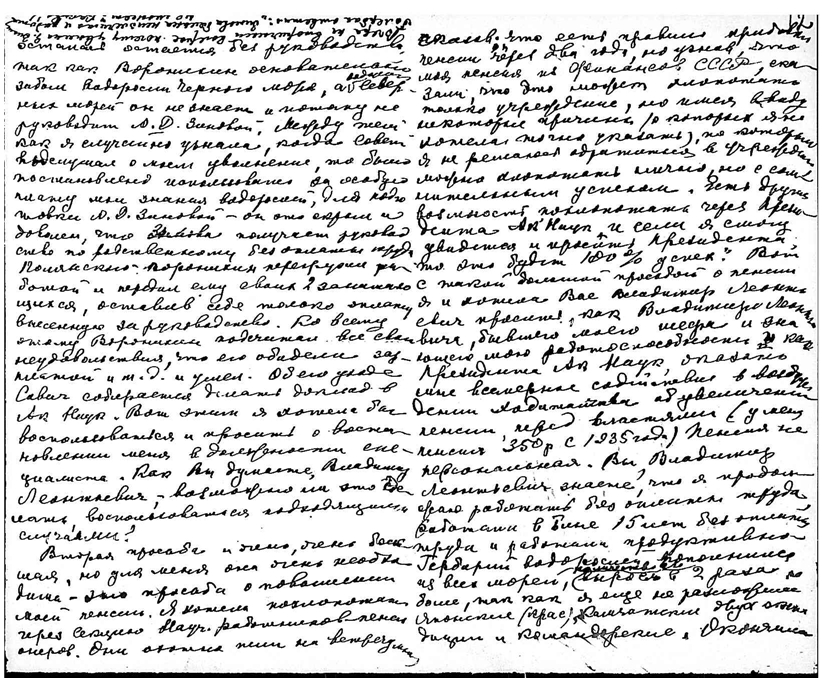 остались остается без руководства,
так как Воронихин основательно
забыл водоросли Черного моря, а Север-
ных морей он не знает и потому не
руководит А.Д. Зиновой. Между тем
как я случайно узнала, когда Совет
подслушал о моем увольнении, то было
постановлено использовать за особую
плату мои знания водорослей, для подго
товки А.Д. Зиновой – он это скрыл и
доволен, что Зинова получает руковод
ство по родственному без оплаты труда
Полянского. Воронихин перегружен ра-
ботой и передал ему своих 2 занимаю
щихся, оставив себе только оплату
внесенную за руководство. Ко всему
этому Воронихин подсчитал все свои
неудовольствия, что его обидели зар-
платой и т.д. и ушел. Об его уходе
Савич собирается делать доклад в
Ак Наук. Вот этим я хотела бы
воспользоваться и просить о восста-
новлении меня в должности спе-
циалиста. Как Вы думаете, Владимир
Леонтьевич, – возможно ли это сде-
лать, воспользоваться подходящими
случаями?
Вторая просьба и очень, очень боль-
шая, но для меня она очень необхо
дима – это просьба о повышении
моей пенсии. Я хотела похлопотать
через Секцию Науч. работников пенси
онеров. Они охотно пошли на встречу,
сказав что есть правило прибавки
пенсии через два года, но узнав, что
моя пенсия из Финансов СССР, ска-
зали, что это может хлопотать
только учреждение, но имея в виду
некоторые причины (о которых я не
хотела точно указать), по которым
я не решаюсь обратиться в Учреждение
можно хлопотать лично, но с сом-
нительным успехом. Есть другая
возможность похлопотать через Прези-
дента Ак Наук и если я смогу
увидеться и просить Президента,
то это будет 100% успех". Вот
с такой большой просьбой о пенсии
я и хотела Вас Владимир Леонть
евич просить, как Владимира Леонть
евича, бывшего моего шефа и зна
ющего мою работоспособность и как
Президента Ак Наук, оказать
мне всемерное содействие в возбуж
дении ходатайства об увеличении
пенсии перед властями (у меня
пенсия 350р с 1935 года.) Пенсия не
персональная. Вы, Владимир
Леонтьевич знаете, что я продол-
жаю работать без оплаты труда,
работала в Бине 15 лет без оплаты
труда и работала продуктивно.
Гербарий водорослей пополнился
из всех морей, вырос в 2 раза и
более, так как я еще не разложила
Японские (Крас), Камчатские двух экспе
диций и Командорские. Окончила